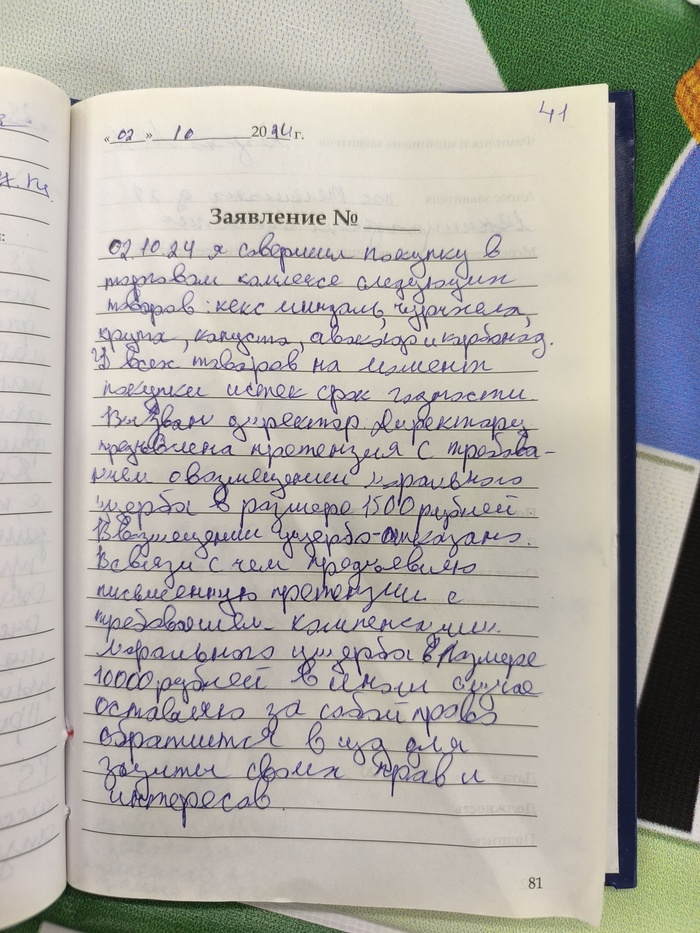 41
«02» 10 2024г.
Заявление №
02.10.24 я совершил покупку в
торговом комлексе следующих
товаров: кекс миндаль, чурчхела,
крупа, капуста, авокадо и карбонад.
У всех товаров на момент
покупки истек срок годности.
Вызван директор. Директору
предъявлена претензия с требова-
нием о возмещении морального
ущерба в размере 1500 рублей.
В возмещении ущерба отказано.
В связи с чем предъевляю
письменную претензии с
требованием компенсации
морального ущерба в размере
10000 рублей в ином случае
оставляю за собой право
обратится в суд для
защиты своих прав и
интересов.
81